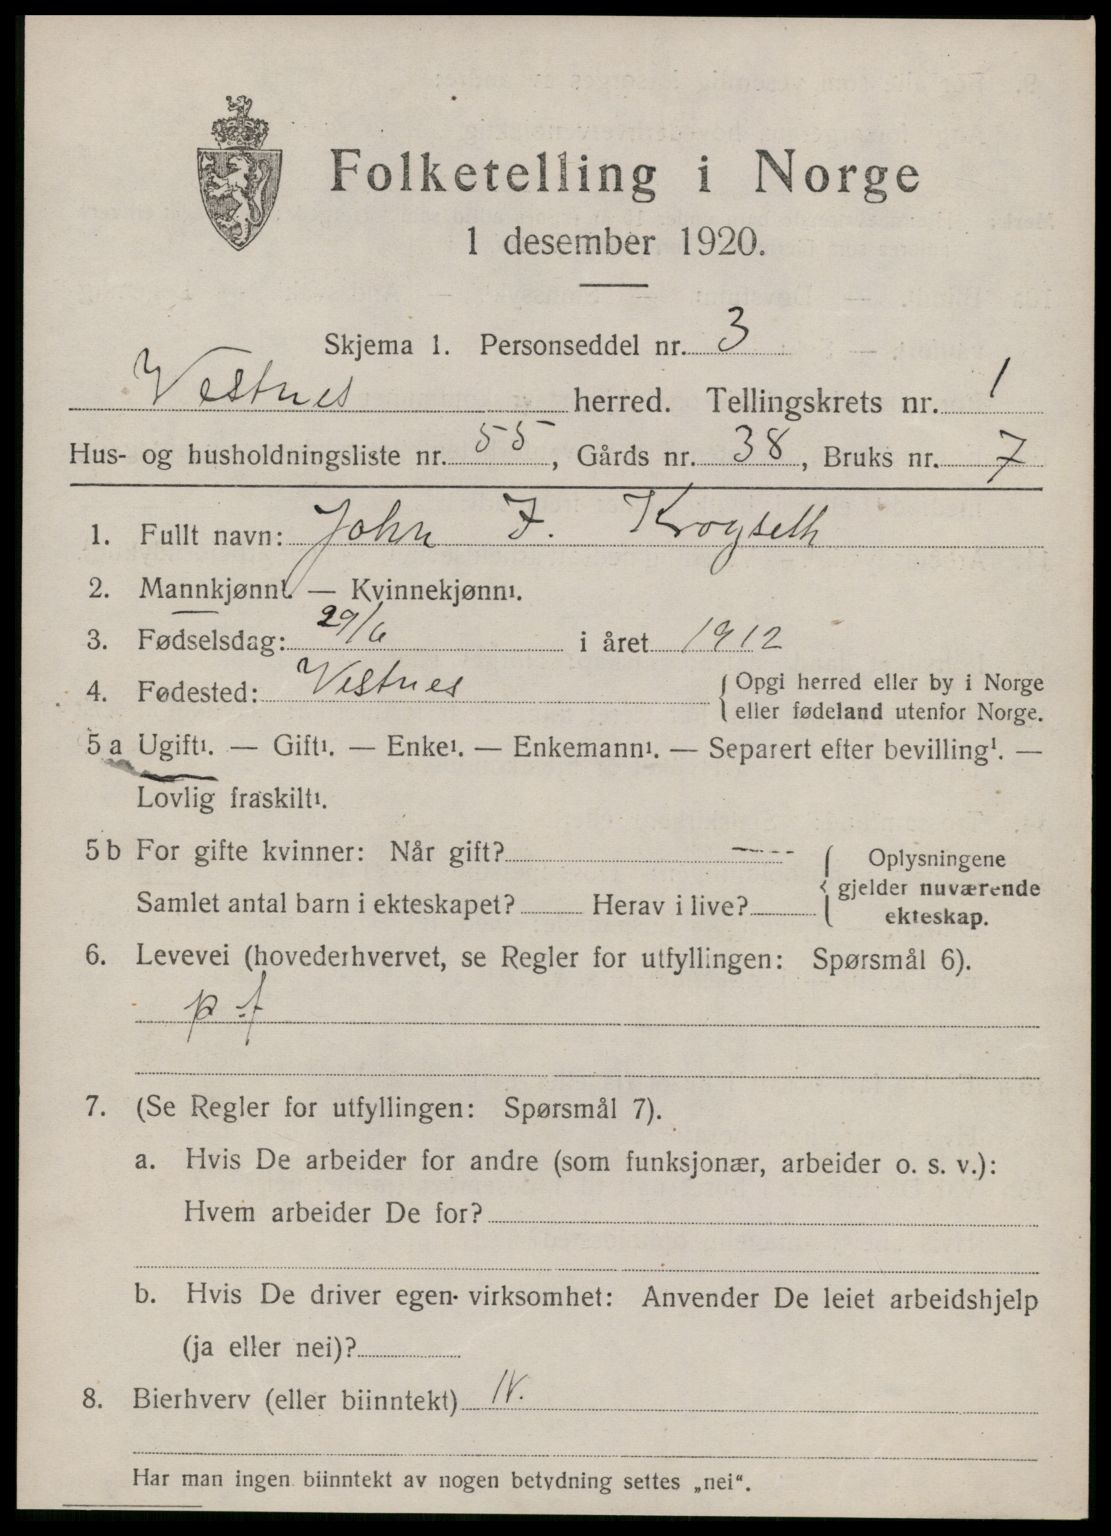 Folketelling i Norge
1 desember 1920.
Skjema 1. Personseddel nr. 3
Vestnes herred. Tellingskrets nr. 1
Hus- og husholdningsliste nr. 55, Gårds nr. 38, Bruks nr. 7
1. Fullt navn: John F. Krogseth
2. Mannkjønn¹. — Kvinnekjønn¹.
3. Fødselsdag: 29/6 i året 1912
4. Fødested: Vestnes {Opgi herred eller by i Norge
eller fødeland utenfor Norge.
5 a Ugift¹. — Gift¹. — Enke¹. — Enkemann¹. — Separert efter bevilling¹. —
Lovlig fraskilt¹.
5 b For gifte kvinner: Når gift? { Oplysningene
gjelder nuværende
ekteskap.
Samlet antal barn i ekteskapet? Herav i live?
6. Levevei (hovederhvervet, se Regler for utfyllingen: Spørsmål 6).
p f
7. (Se Regler for utfyllingen: Spørsmål 7).
a. Hvis De arbeider for andre (som funksjonær, arbeider o. s. v.):
Hvem arbeider De for?
b. Hvis De driver egen virksomhet: Anvender De leiet arbeidshjelp
(ja eller nei)?
8. Bierhverv (eller biinntekt) N.
Har man ingen biinntekt av nogen betydning settes „nei“.